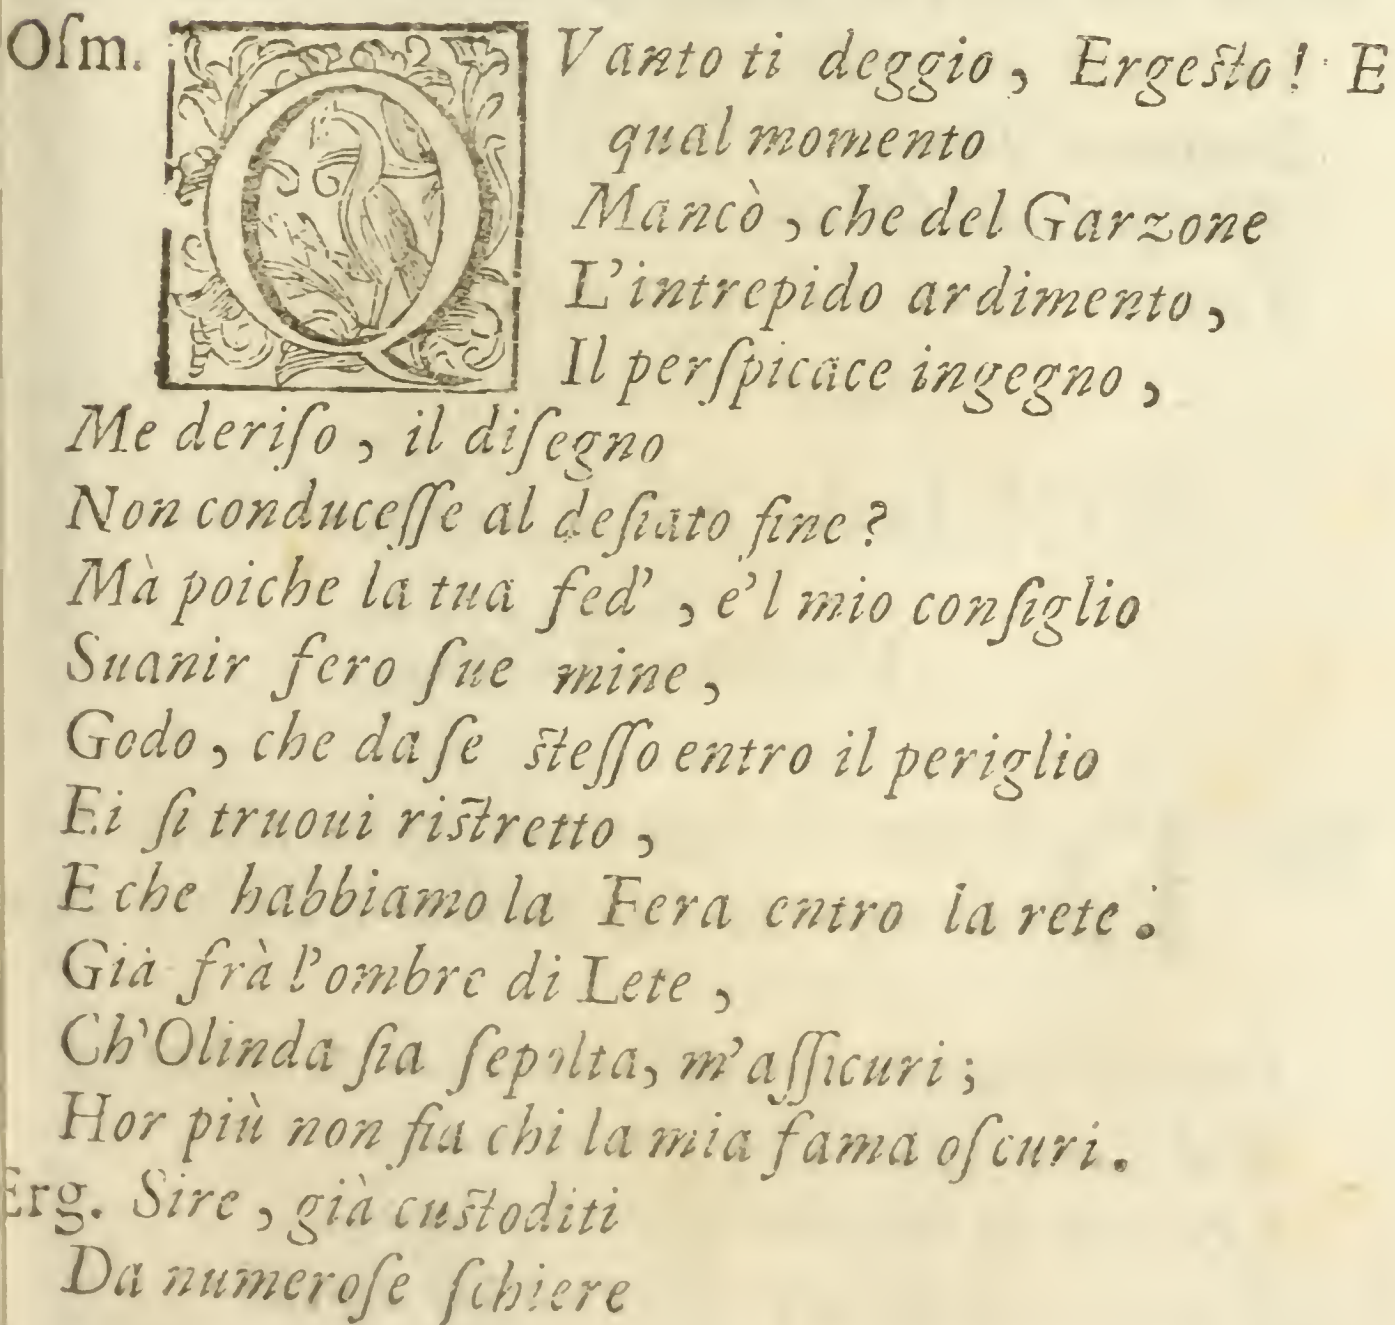 Oſm. QVanto ti deggio, Ergeſto! E
qual momento
Mancò, che del Garzone
L'intrepido ardimento,
Il perſpicace ingegno,
Me deriſo, il diſegno
Non conduceſſe al deſiato fine?
Mà poiche la tua fed', e'l mio conſiglio
Suanir fero ſue mine,
Godo, che da ſe ſteſſo entro il periglio
Ei ſi truoui riſtretto,
E che habbiamo la Fera entro la rete.
Già frà l'ombre di Lete,
Ch'Olinda ſia ſepolta, m'aſſicuri;
Hor più non fia chi la mia fama oſcuri.
Erg. Sire, già cuſtoditi
Da numeroſe ſchiere